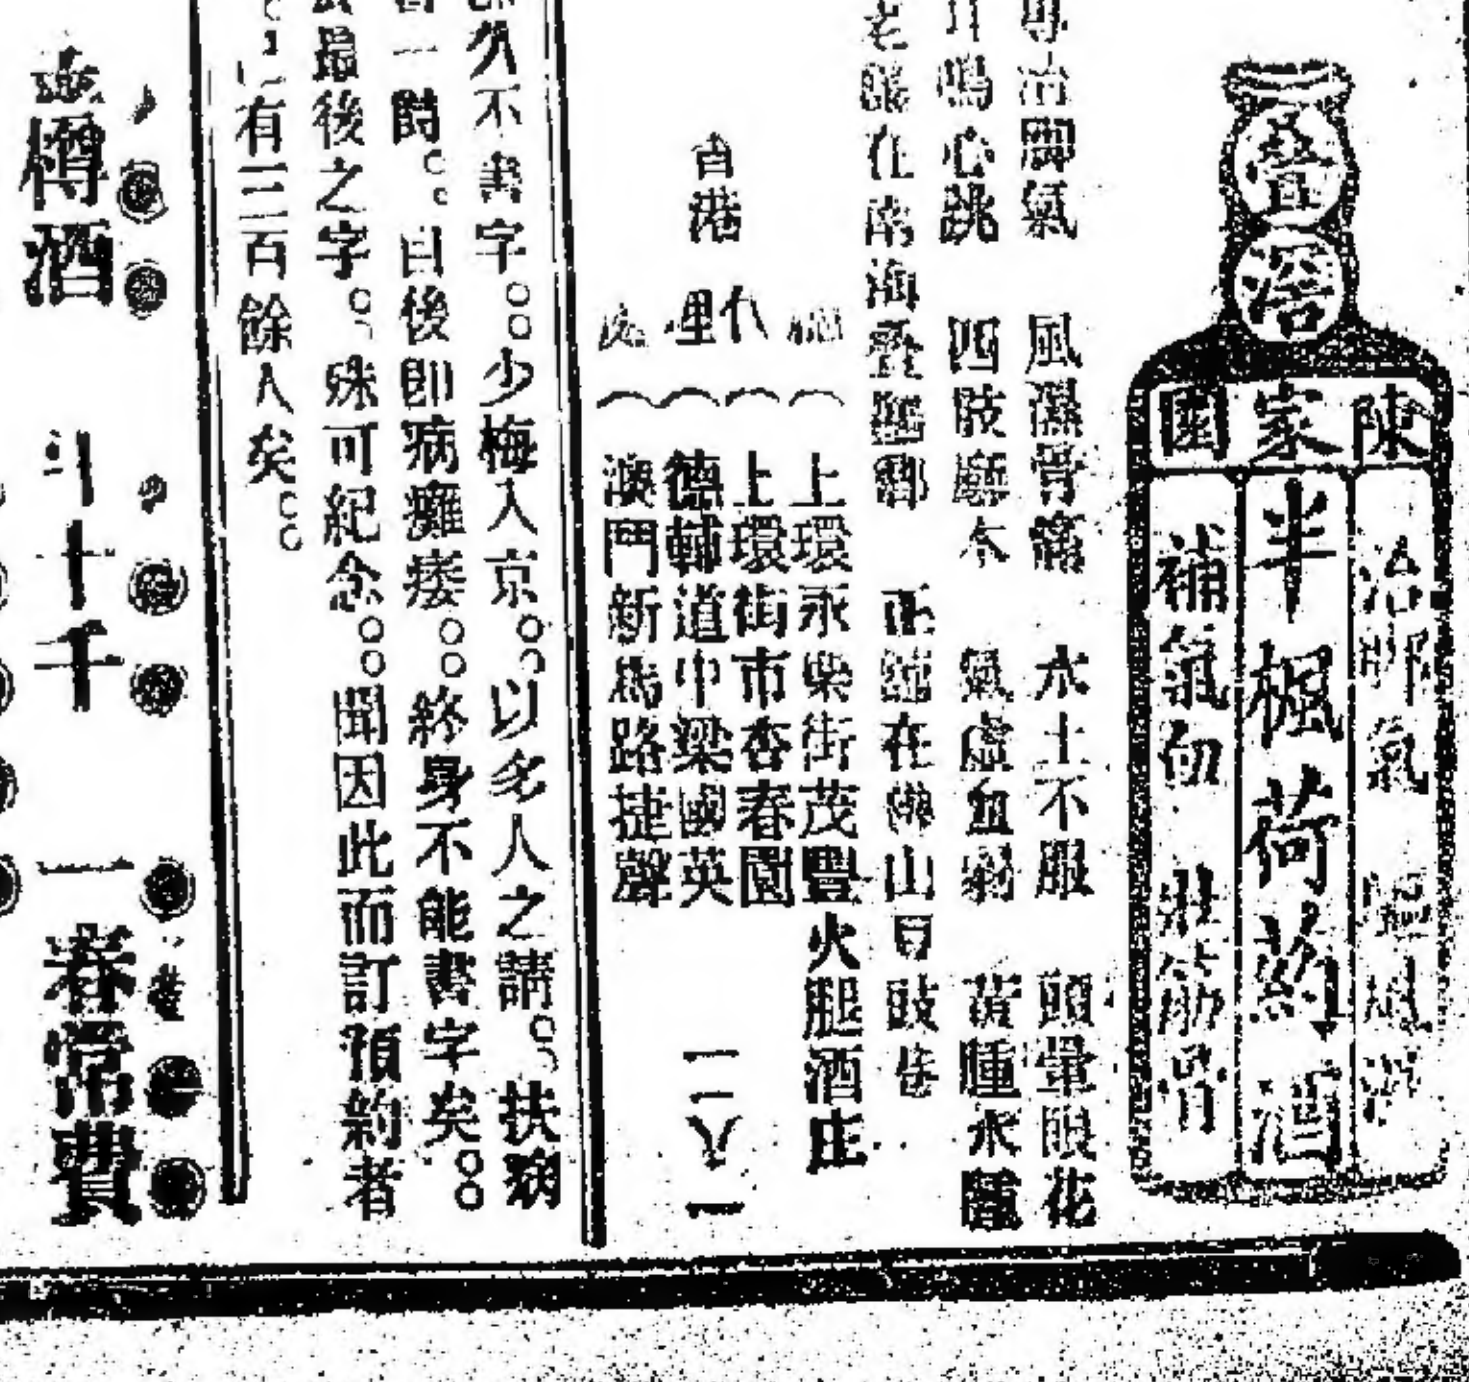 疊滘
陳家園
治脚氣 風濕
半楓荷葯酒
補氣血 壯筋骨
專治脚氣 風濕骨痛 水土不服 頭暈眼花
耳鳴心跳 四肢麻木 氣虛血弱 黃腫水腫
老舖在南海疊滘鄉 正舖在佛山豆豉巷
上環永樂街茂豐火腿酒庄
香港 代理
上環街市杏春園
德輔道中梁國英
澳門新馬路捷聲
一二八一
久不書字。。少梅入京。。以多人之請。。扶病
書一時。。日後即病癱痿。。終身不能書字矣。。
最後之字。。殊可紀念。。聞因此而訂預約者
有三百餘人矣。。
樽酒 斗十千 一春常費